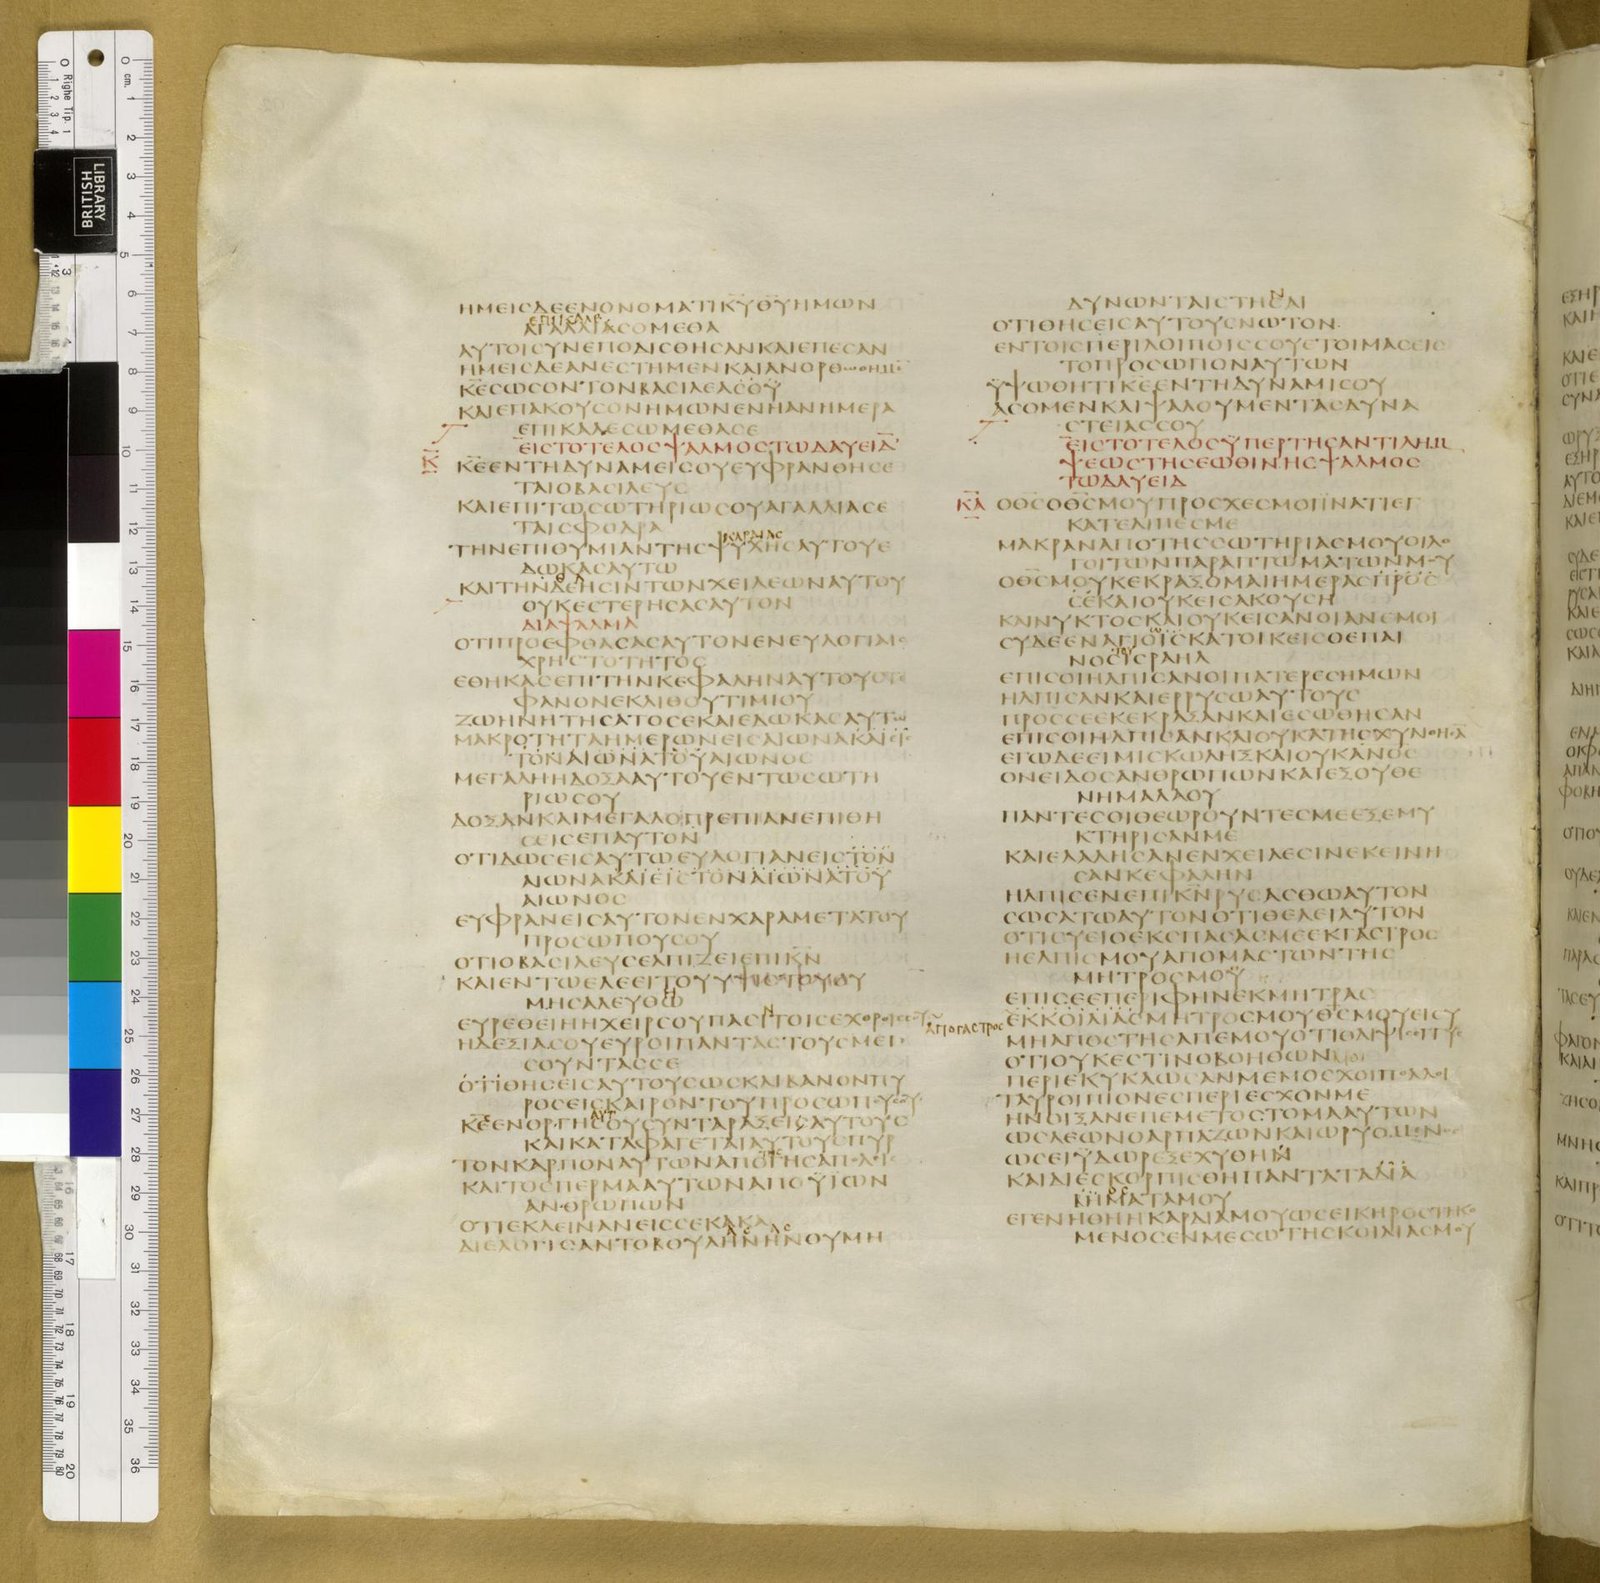 ΗΜΕΙϹΔΕΕΝΟΝΟΜΑΤΙΚΥΘΥΗΜΩΝ
ΑΓΑΛΛΙΑϹΟΜΕΘΑ
ΑΥΤΟΙϹΥΝΕΠΟΔΙϹΘΗϹΑΝΚΑΙΕΠΕϹΑΝ
ΗΜΕΙϹΔΕΑΝΕϹΤΗΜΕΝΚΑΙΑΝΟΡΘΩΘΗΜΕ
ΚΕϹΩϹΟΝΤΟΝΒΑϹΙΛΕΑϹΟΥ
ΚΑΙΕΠΑΚΟΥϹΟΝΗΜΩΝΕΝΗΑΝΗΜΕΡΑ
ΕΠΙΚΑΛΕϹΩΜΕΘΑϹΕ
ΕΙϹΤΟΤΕΛΟϹΨΑΛΜΟϹΤΩΔΑΥΕΙΔ
Κ
ΚΕΕΝΤΗΔΥΝΑΜΕΙϹΟΥΕΥΦΡΑΝΘΗϹΕ
ΤΑΙΟΒΑϹΙΛΕΥϹ
ΚΑΙΕΠΙΤΩϹΩΤΗΡΙΩϹΟΥΑΓΑΛΛΙΑϹΕ
ΤΑΙϹΦΟΔΡΑ
ΚΑΡΔΙΑϹ
ΤΗΝΕΠΙΘΥΜΙΑΝΤΗϹΨΥΧΗϹΑΥΤΟΥΕ
ΔΩΚΑϹΑΥΤΩ
ΚΑΙΤΗΝΔΕΗϹΙΝΤΩΝΧΕΙΛΕΩΝΑΥΤΟΥ
ΟΥΚΕϹΤΕΡΗϹΑϹΑΥΤΟΝ
ΔΙΑΨΑΛΜΑ
ΟΤΙΠΡΟΕΦΘΑϹΑϹΑΥΤΟΝΕΝΕΥΛΟΓΙΑΙϹ
ΧΡΗϹΤΟΤΗΤΟϹ
ΕΘΗΚΑϹΕΠΙΤΗΝΚΕΦΑΛΗΝΑΥΤΟΥϹΤΕ
ΦΑΝΟΝΕΚΛΙΘΟΥΤΙΜΙΟΥ
ΖΩΗΝΗΤΗϹΑΤΟϹΕΚΑΙΕΔΩΚΑϹΑΥΤΩ
ΜΑΚΡΟΤΗΤΑΗΜΕΡΩΝΕΙϹΑΙΩΝΑΚΑΙΕΙϹ
ΤΟΝΑΙΩΝΑΤΟΥΑΙΩΝΟϹ
ΜΕΓΑΛΗΗΔΟΞΑΑΥΤΟΥΕΝΤΩϹΩΤΗ
ΡΙΩϹΟΥ
ΔΟΞΑΝΚΑΙΜΕΓΑΛΟΠΡΕΠΙΑΝΕΠΙΘΗ
ϹΕΙϹΕΠΑΥΤΟΝ
ΟΤΙΔΩϹΕΙϹΑΥΤΩΕΥΛΟΓΙΑΝΕΙϹΤΟΝ
ΑΙΩΝΑΚΑΙΕΙϹΤΟΝΑΙΩΝΑΤΟΥ
ΑΙΩΝΟϹ
ΕΥΦΡΑΝΕΙϹΑΥΤΟΝΕΝΧΑΡΑΜΕΤΑΤΟΥ
ΠΡΟϹΩΠΟΥϹΟΥ
ΟΤΙΟΒΑϹΙΛΕΥϹΕΛΠΙΖΕΙΕΠΙΚΝ
ΚΑΙΕΝΤΩΕΛΕΕΙΤΟΥΥΨΙϹΤΟΥΟΥ
ΜΗϹΑΛΕΥΘΩ
ΕΥΡΕΘΕΙΗΗΧΕΙΡϹΟΥΠΑϹΙΤΟΙϹΕΧΘΡΟΙϹϹΟΥ
ΗΔΕΞΙΑϹΟΥΕΥΡΟΙΠΑΝΤΑϹΤΟΥϹΜΕΙ
ϹΟΥΝΤΑϹϹΕ
ΟΤΙΘΗϹΕΙϹΑΥΤΟΥϹΩϹΚΛΙΒΑΝΟΝΠΥ
ΡΟϹΕΙϹΚΑΙΡΟΝΤΟΥΠΡΟϹΩΠΟΥϹΟΥ
ΚΕΕΝΟΡΓΗϹΟΥϹΥΝΤΑΡΑΞΕΙϹΑΥΤΟΥϹ
ΚΑΙΚΑΤΑΦΑΓΕΤΑΙΑΥΤΟΥϹΠΥΡ
ΤΟΝΚΑΡΠΟΝΑΥΤΩΝΑΠΟΤΗϹΑΠΟΛΕΙϹ
ΚΑΙΤΟϹΠΕΡΜΑΑΥΤΩΝΑΠΟΥΙΩΝ
ΑΝΘΡΩΠΩΝ
ΟΤΙΕΚΛΕΙΝΑΝΕΙϹϹΕΚΑΚΑ
ΔΙΕΛΟΓΙϹΑΝΤΟΒΟΥΛΗΝΗΝΟΥΜΗ
ΔΥΝΩΝΤΑΙϹΤΗϹΑΙ
ΟΤΙΘΗϹΕΙϹΑΥΤΟΥϹΝΩΤΟΝ
ΕΝΤΟΙϹΠΕΡΙΛΟΙΠΟΙϹϹΟΥΕΤΟΙΜΑϹΕΙϹ
ΤΟΠΡΟϹΩΠΟΝΑΥΤΩΝ
ΥΨΩΘΗΤΙΚΕΕΝΤΗΔΥΝΑΜΙϹΟΥ
ΑϹΟΜΕΝΚΑΙΨΑΛΟΥΜΕΝΤΑϹΔΥΝΑ
ϹΤΕΙΑϹϹΟΥ
ΕΙϹΤΟΤΕΛΟϹΥΠΕΡΤΗϹΑΝΤΙΛΗΜ
ΨΕΩϹΤΗϹΕΩΘΙΝΗϹΨΑΛΜΟϹ
ΤΩΔΑΥΕΙΔ
ΚΑ
ΟΘϹΟΘϹΜΟΥΠΡΟϹΧΕϹΜΟΙΪΝΑΤΙΕΓ
ΚΑΤΕΛΙΠΕϹΜΕ
ΜΑΚΡΑΝΑΠΟΤΗϹϹΩΤΗΡΙΑϹΜΟΥΟΙΛΟ
ΓΟΙΤΩΝΠΑΡΑΠΤΩΜΑΤΩΝΜΟΥ
ΟΘϹΜΟΥΚΕΚΡΑΞΟΜΑΙΗΜΕΡΑϹΠΡΟϹ
ϹΕΚΑΙΟΥΚΕΙϹΑΚΟΥϹΗ
ΚΑΙΝΥΚΤΟϹΚΑΙΟΥΚΕΙϹΑΝΟΙΑΝΕΜΟΙ
ϹΥΔΕΕΝΑΓΙΟΙϹΚΑΤΟΙΚΕΙϹΟΕΠΑΙ
ΝΟϹΙϹΡΑΗΛ
ΕΠΙϹΟΙΗΛΠΙϹΑΝΟΙΠΑΤΕΡΕϹΗΜΩΝ
ΗΛΠΙϹΑΝΚΑΙΕΡΡΥϹΩΑΥΤΟΥϹ
ΠΡΟϹϹΕΕΚΕΚΡΑΞΑΝΚΑΙΕϹΩΘΗϹΑΝ
ΕΠΙϹΟΙΗΛΠΙϹΑΝΚΑΙΟΥΚΑΤΗϹΧΥΝΘΗϹΑ
ΕΓΩΔΕΕΙΜΙϹΚΩΛΗΞΚΑΙΟΥΚΑΝΟϹ
ΟΝΕΙΔΟϹΑΝΘΡΩΠΩΝΚΑΙΕΞΟΥΘΕ
ΝΗΜΑΛΑΟΥ
ΠΑΝΤΕϹΟΙΘΕΩΡΟΥΝΤΕϹΜΕΕΞΕΜΥ
ΚΤΗΡΙϹΑΝΜΕ
ΚΑΙΕΛΑΛΗϹΑΝΕΝΧΕΙΛΕϹΙΝΕΚΕΙΝΗ
ϹΑΝΚΕΦΑΛΗΝ
ΗΛΠΙϹΕΝΕΠΙΚΝΡΥϹΑϹΘΩΑΥΤΟΝ
ϹΩϹΑΤΩΑΥΤΟΝΟΤΙΘΕΛΕΙΑΥΤΟΝ
ΟΤΙϹΥΕΙΟΕΚϹΠΑϹΑϹΜΕΕΚΓΑϹΤΡΟϹ
ΗΕΛΠΙϹΜΟΥΑΠΟΜΑϹΤΩΝΤΗϹ
ΜΗΤΡΟϹΜΟΥ
ΕΠΙϹΕΕΠΕΡΙΦΗΝΕΚΜΗΤΡΑϹ
ΑΠΟΓΑϹΤΡΟϹ
ΕΚΚΟΙΛΙΑϹΜΗΤΡΟϹΜΟΥΘϹΜΟΥΕΙϹΥ
ΜΗΑΠΟϹΤΗϹΑΠΕΜΟΥΟΤΙΘΛΙΨΙϹ
ΟΤΙΟΥΚΕϹΤΙΝΟΒΟΗΘΩΝ
ΠΕΡΙΕΚΥΚΛΩϹΑΝΜΕΜΟϹΧΟΙΠΟΛΛΟΙ
ΤΑΥΡΟΙΠΙΟΝΕϹΠΕΡΙΕϹΧΟΝΜΕ
ΗΝΟΙΞΑΝΕΠΕΜΕΤΟϹΤΟΜΑΑΥΤΩΝ
ΩϹΛΕΩΝΟΑΡΠΑΖΩΝΚΑΙΩΡΥΟΜΕΝΟϹ
ΩϹΕΙΫΔΩΡΕΞΕΧΥΘΗΝ
ΚΑΙΔΙΕϹΚΟΡΠΙϹΘΗΠΑΝΤΑΤΑ
ΜΑΤΑΜΟΥ
ΕΓΕΝΗΘΗΗΚΑΡΔΙΑΜΟΥΩϹΕΙΚΗΡΟϹΤΗΚΟ
ΜΕΝΟϹΕΝΜΕϹΩΤΗϹΚΟΙΛΙΑϹΜΟΥ
BRITISH LIBRARY